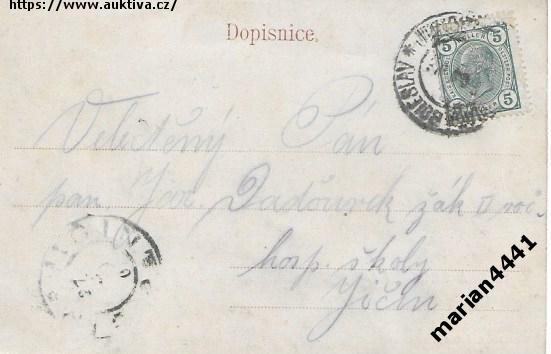 https://www.auktiva.cz/
Dopisnice.
BOLESLAV
5 HELLER 5
5 5
Veletěný Pán
pan Jar. Dadourek žák II roč.
hosp. školy
Jičín
JIČÍN
marian4441